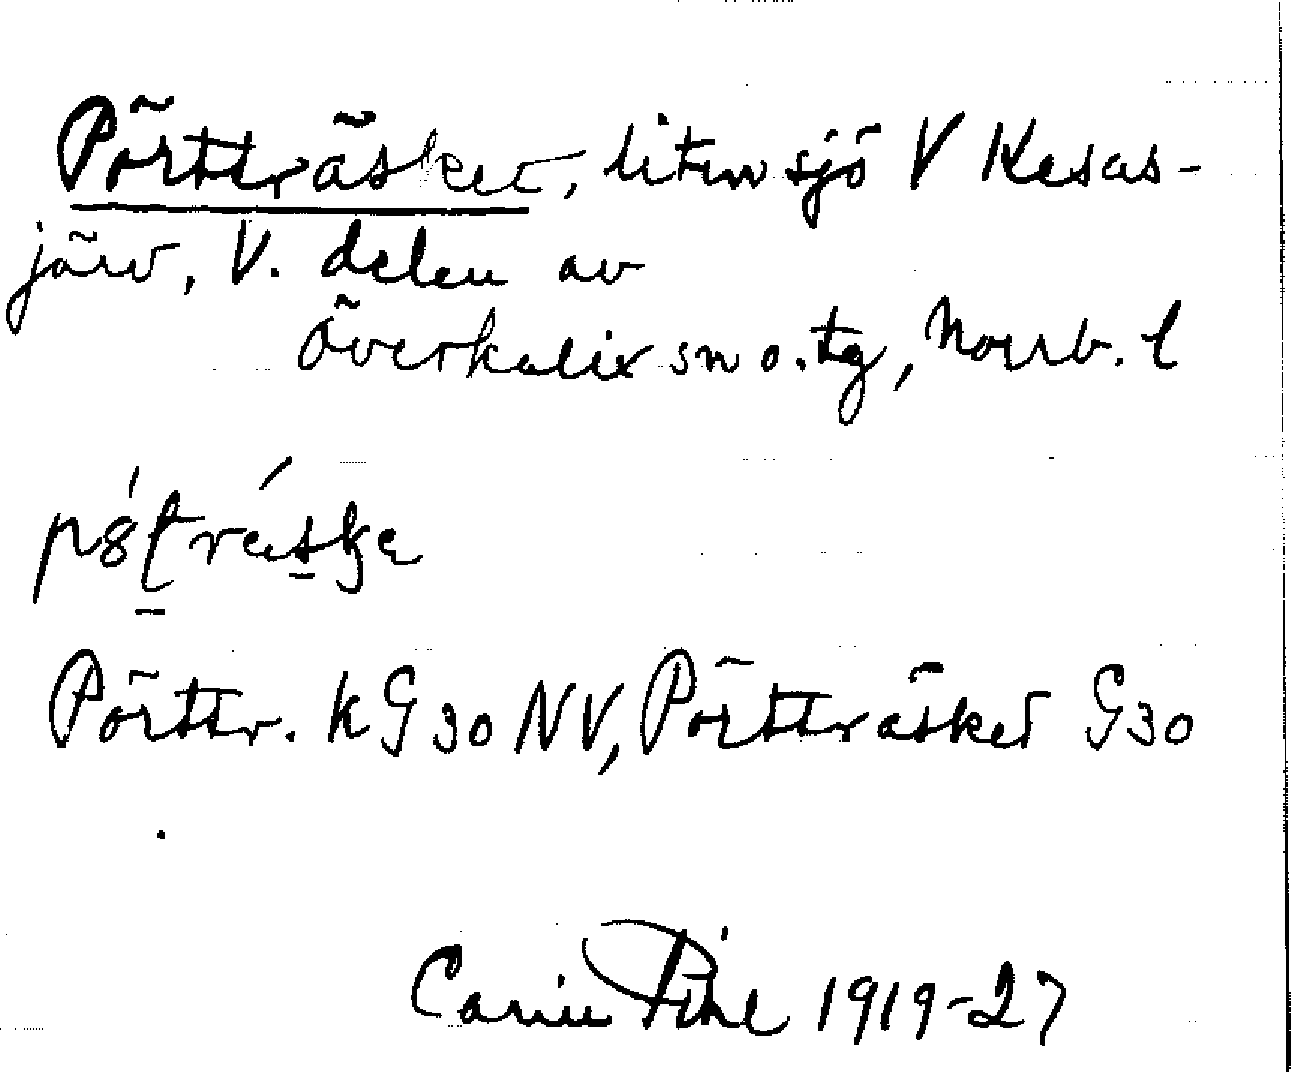 Pörtträsket, liten sjö V Kesas-
järv, V. delen av
Överkalix sn o. tg, Norrb. l
Pörttr. kG30NV, Pörtträsket G30
Carin Pihl 1919-27